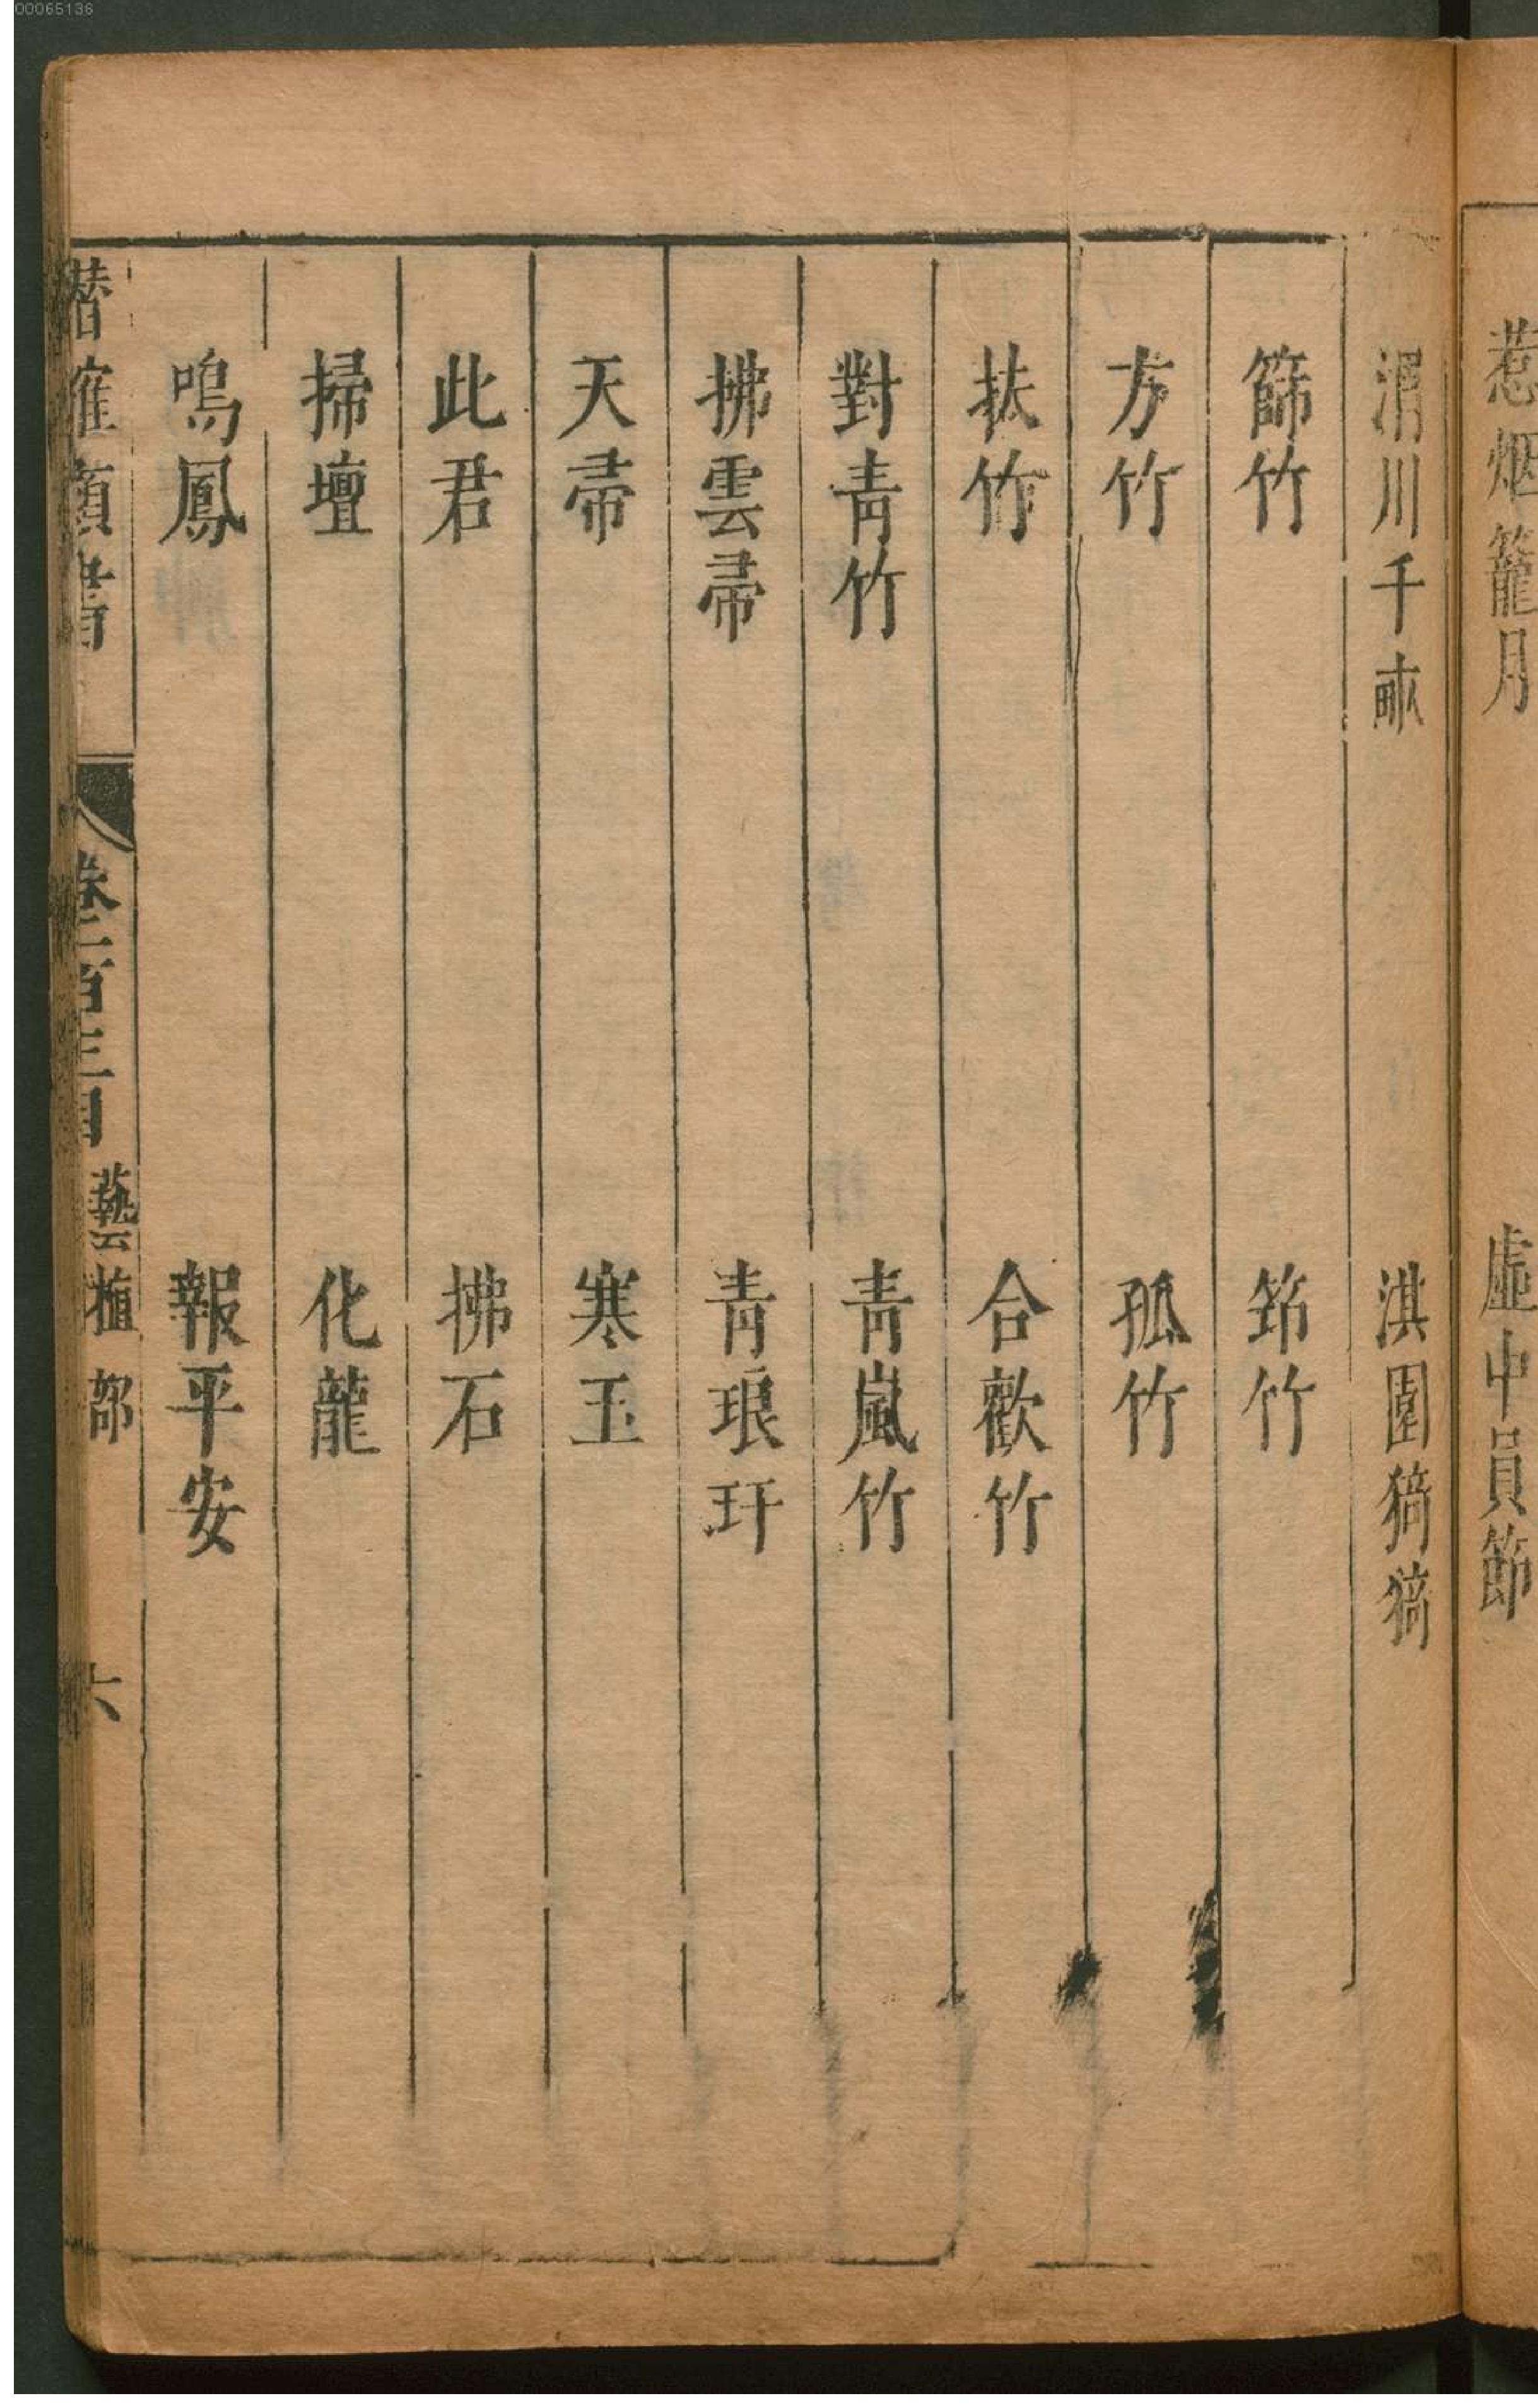 00065136
惹烟籠月
虛中員節
渭川千畝
淇園猗猗
篩竹
筇竹
方竹
孤竹
扶竹
合歡竹
對青竹
青嵐竹
拂雲帚
青琅玕
天帚
寒玉
此君
拂石
掃壇
化龍
鳴鳳
報平安
潛確類書
卷一百三目
藝植部
六